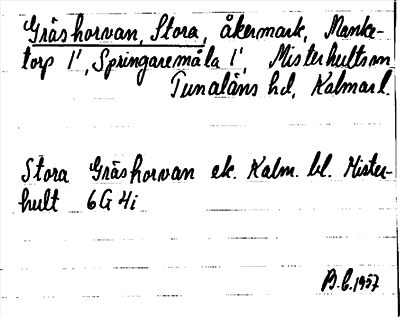 Gräshorvan, Stora, åkermark, Manke-
torp 1', Springaremåla 1', Misterhults sn
Tunaläns hd, Kalmar l.
Stora Gräshorvan ek. Kalm. bl. Mister-
hult 6G 4i
B.C. 1957